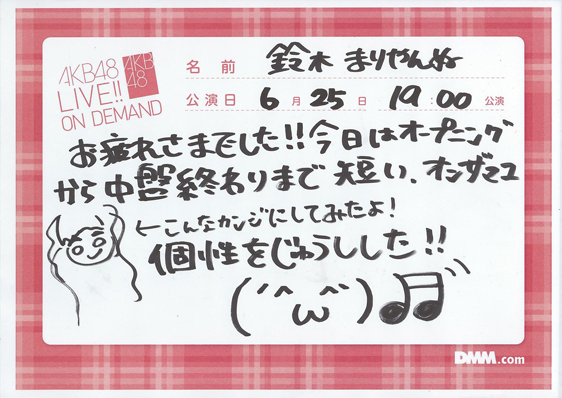 AKB48
LIVE!!
ON DEMAND
AKB
48
名前 鈴木 まりやんぬ
公演日 6月25日 19:00公演
お疲れさまでした!!今日はオープニング
から中盤終わりまで短い、オンザマユ
←こんなカンジにしてみたよ!
個性をじゅうしした!!
(´^ω^`)♫
DMM.com